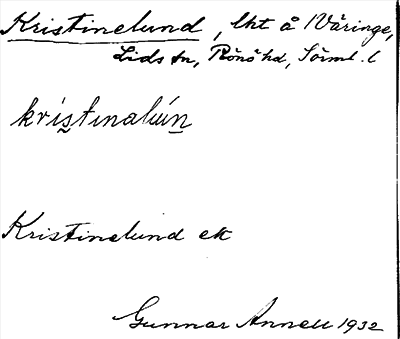 Kristinelund, lht å Våringe,
Lids sn, Rönö hd, Sörml. l
kristinalún
Kristinelund ek
Gunnar Annell 1932